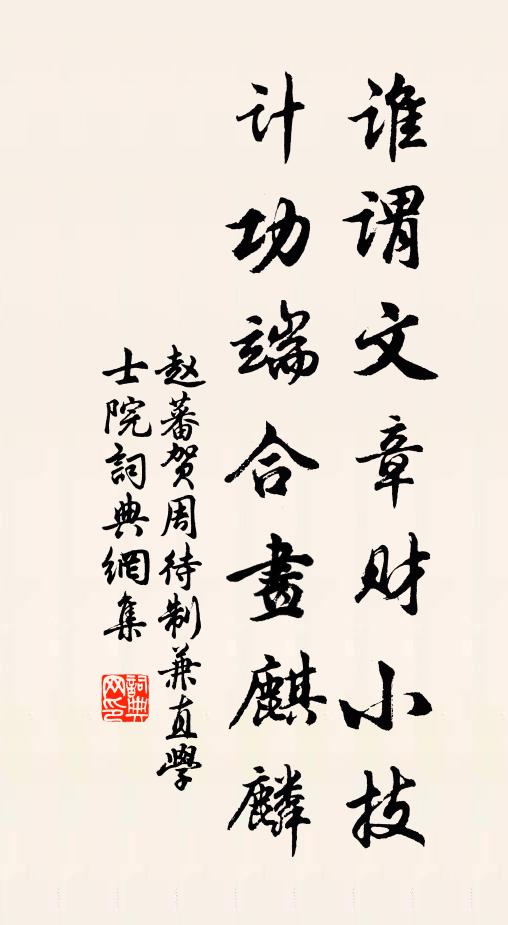 谁谓文章财小技
计功端合畫麒麟
赵蕃贺周待制兼直學
士院詞典網集
詞典
网印